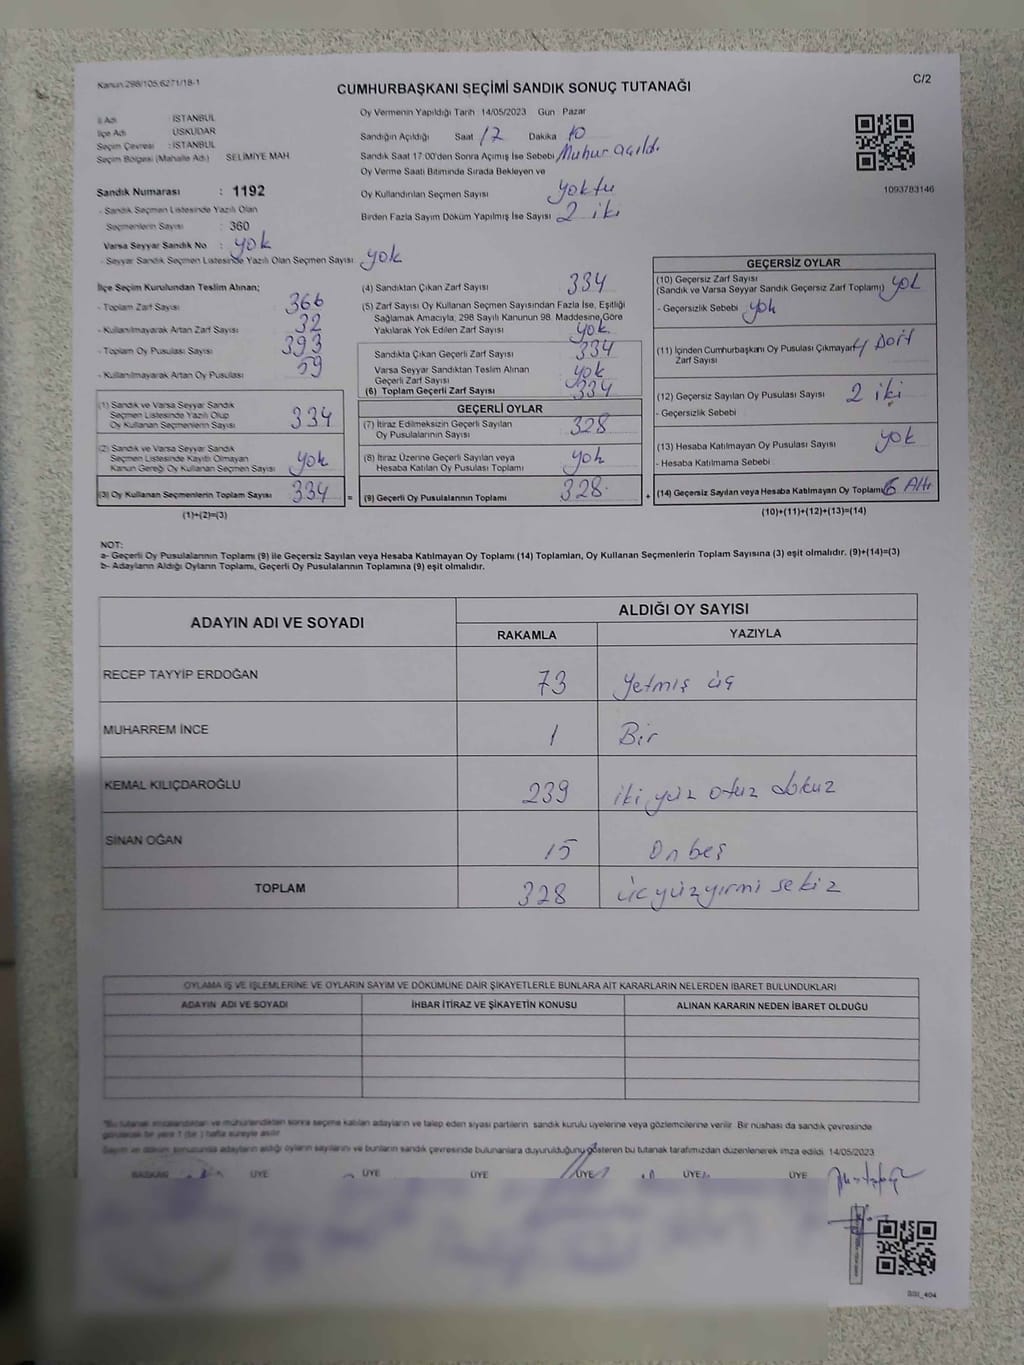 Kanun:298/105,6271/18-1
C/2
CUMHURBAŞKANI SEÇİMİ SANDIK SONUÇ TUTANAĞI
İl Adı : İSTANBUL
İlçe Adı : ÜSKÜDAR
Seçim Çevresi : İSTANBUL
Seçim Bölgesi (Mahalle Adı) SELİMİYE MAH.
Sandık Numarası : 1192
- Sandık Seçmen Listesinde Yazılı Olan
Seçmenlerin Sayısı : 360
Varsa Seyyar Sandık No : yok
- Seyyar Sandık Seçmen Listesinde Yazılı Olan Seçmen Sayısı yok
Oy Vermenin Yapıldığı Tarih 14/05/2023 Gün Pazar
Sandığın Açıldığı Saat 17 Dakika 10
Sandık Saat 17:00'den Sonra Açılmış İse Sebebi Muhur açıldı
Oy Verme Saati Bitiminde Sırada Bekleyen ve
Oy Kullandırılan Seçmen Sayısı yoktu
Birden Fazla Sayım Döküm Yapılmış İse Sayısı 2 iki
1093783146
İlçe Seçim Kurulundan Teslim Alınan;
- Toplam Zarf Sayısı 366
- Kullanılmayarak Artan Zarf Sayısı 32
- Toplam Oy Pusulası Sayısı 393
- Kullanılmayarak Artan Oy Pusulası 59
(1) Sandık ve Varsa Seyyar Sandık
Seçmen Listesinde Yazılı Olup
Oy Kullanan Seçmenlerin Sayısı 334
(2) Sandık ve Varsa Seyyar Sandık
Seçmen Listesinde Kayıtlı Olmayan
Kanun Gereği Oy Kullanan Seçmen Sayısı yok
(3) Oy Kullanan Seçmenlerin Toplam Sayısı 334 =
(1)+(2)=(3)
(4) Sandıktan Çıkan Zarf Sayısı 334
(5) Zarf Sayısı Oy Kullanan Seçmen Sayısından Fazla İse, Eşitliği
Sağlamak Amacıyla, 298 Sayılı Kanunun 98. Maddesine Göre
Yakılarak Yok Edilen Zarf Sayısı yok.
Sandıkta Çıkan Geçerli Zarf Sayısı 334
Varsa Seyyar Sandıktan Teslim Alınan
Geçerli Zarf Sayısı yok
(6) Toplam Geçerli Zarf Sayısı 334
GEÇERLİ OYLAR
(7) İtiraz Edilmeksizin Geçerli Sayılan
Oy Pusulalarının Sayısı 328
(8) İtiraz Üzerine Geçerli Sayılan veya
Hesaba Katılan Oy Pusulası Toplamı yok
(9) Geçerli Oy Pusulalarının Toplamı 328. +
GEÇERSİZ OYLAR
(10) Geçersiz Zarf Sayısı
(Sandık ve Varsa Seyyar Sandık Geçersiz Zarf Toplamı) yok
- Geçersizlik Sebebi yok
(11) İçinden Cumhurbaşkanı Oy Pusulası Çıkmayan 4 Dört
Zarf Sayısı
(12) Geçersiz Sayılan Oy Pusulası Sayısı 2 iki
- Geçersizlik Sebebi
(13) Hesaba Katılmayan Oy Pusulası Sayısı yok
- Hesaba Katılmama Sebebi
(14) Geçersiz Sayılan veya Hesaba Katılmayan Oy Toplamı 6 Altı
(10)+(11)+(12)+(13)=(14)
NOT:
a- Geçerli Oy Pusulalarının Toplamı (9) ile Geçersiz Sayılan veya Hesaba Katılmayan Oy Toplamı (14) Toplamları, Oy Kullanan Seçmenlerin Toplam Sayısına (3) eşit olmalıdır. (9)+(14)=(3)
b- Adayların Aldığı Oyların Toplamı, Geçerli Oy Pusulalarının Toplamına (9) eşit olmalıdır.
ADAYIN ADI VE SOYADI ALDIĞI OY SAYISI
RAKAMLA YAZIYLA
RECEP TAYYİP ERDOĞAN 73 Yetmiş üç
MUHARREM İNCE 1 Bir
KEMAL KILIÇDAROĞLU 239 iki yüz otuz dokuz
SİNAN OĞAN 15 On beş
TOPLAM 328 üçyüzyirmi sekiz
OYLAMA İŞ VE İŞLEMLERİNE VE OYLARIN SAYIM VE DÖKÜMÜNE DAİR ŞİKAYETLERLE BUNLARA AİT KARARLARIN NELERDEN İBARET BULUNDUKLARI
ADAYIN ADI VE SOYADI İHBAR İTİRAZ VE ŞİKAYETİN KONUSU ALINAN KARARIN NEDEN İBARET OLDUĞU
*Bu tutanak imzalandıktan ve mühürlendikten sonra seçime katılan adayların ve talep eden siyasi partilerin sandık kurulu üyelerine veya gözlemcilerine verilir. Bir nüshası da sandık çevresinde
görülecek bir yere 1 (bir ) hafta süreyle asılır.
Sayım ve döküm sonucunda adayların aldığı oyların sayılarını ve bunların sandık çevresinde bulunanlara duyurulduğunu gösteren bu tutanak tarafımızdan düzenlenerek imza edildi. 14/05/2023
BAŞKAN ÜYE ÜYE ÜYE ÜYE ÜYE ÜYE